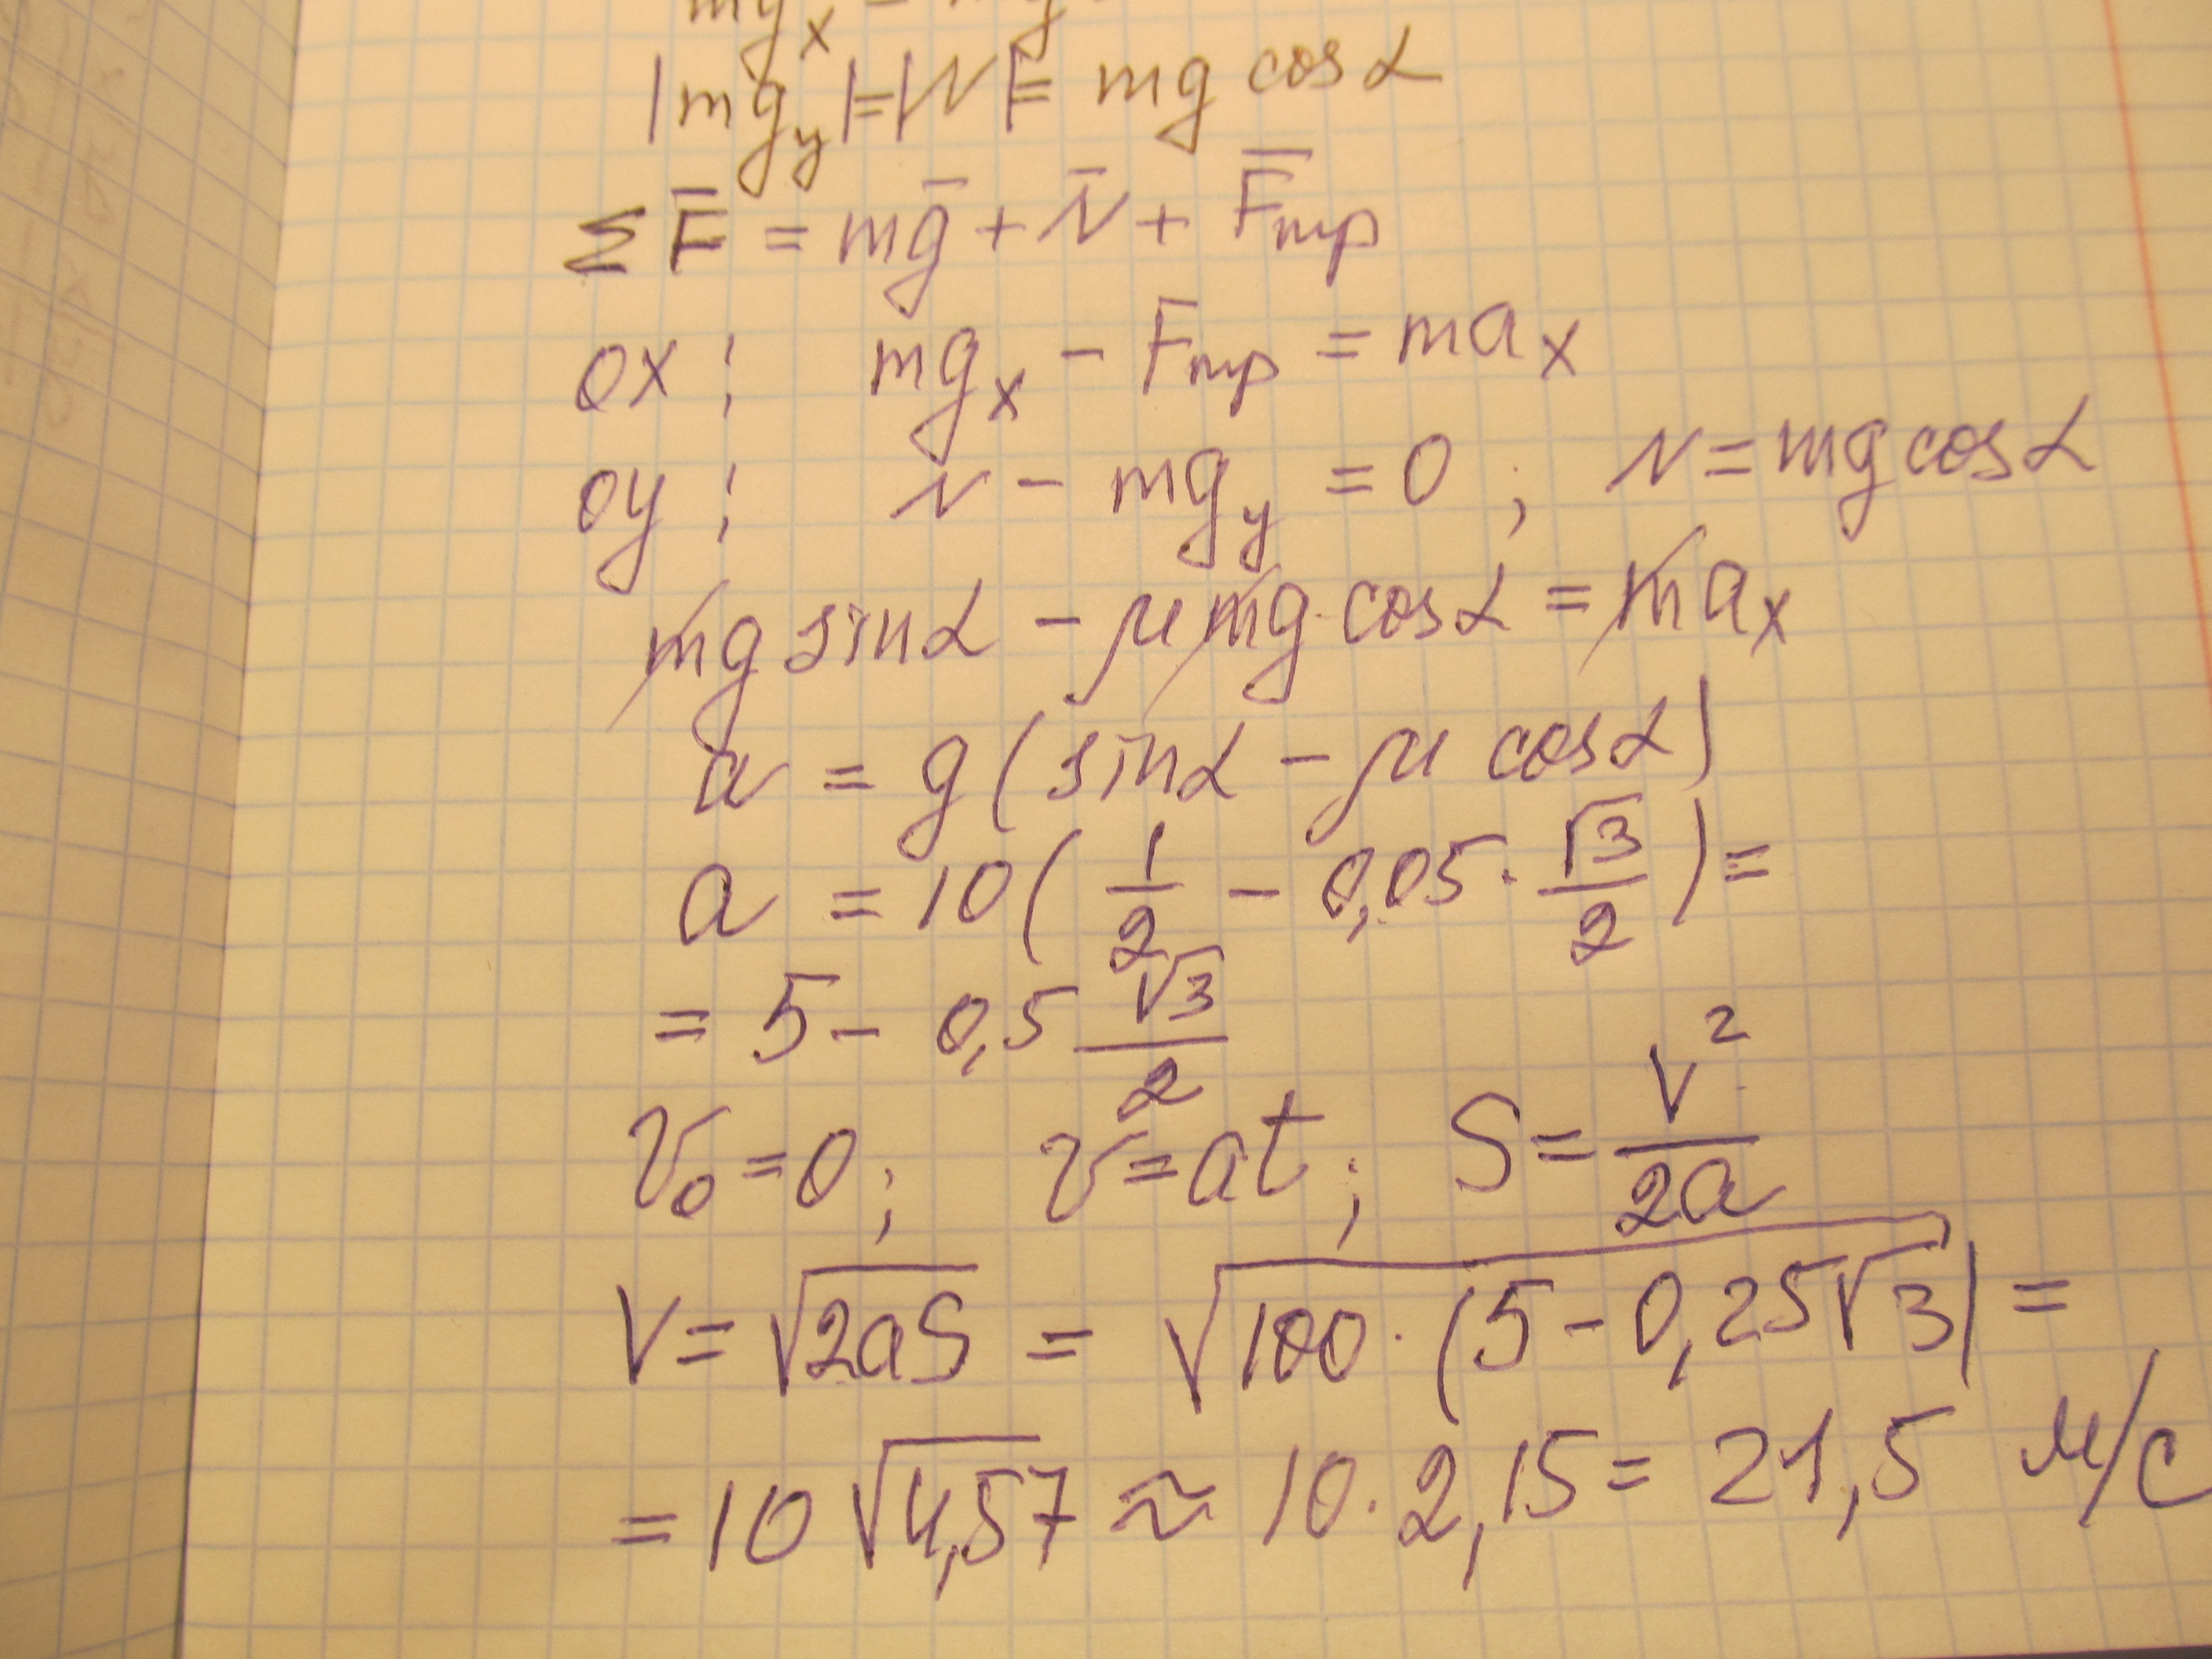 mg_x = mg
|mg_y|=|N|= mg cosα
ΣF̄ = mḡ + N̄ + F̄тр
ox: mg_x - Fтр = ma_x
oy: N - mg_y = 0; N = mg cosα
mg sinα - μmg·cosα = ma_x
a = g(sinα - μ cosα)
a = 10(1/2 - 0,05·√3/2) =
= 5 - 0,5 √3/2
v₀=0; v=at; S = V²/2a
V = √2aS = √100·(5-0,25√3) =
= 10√4,57 ≈ 10·2,15 = 21,5 м/с